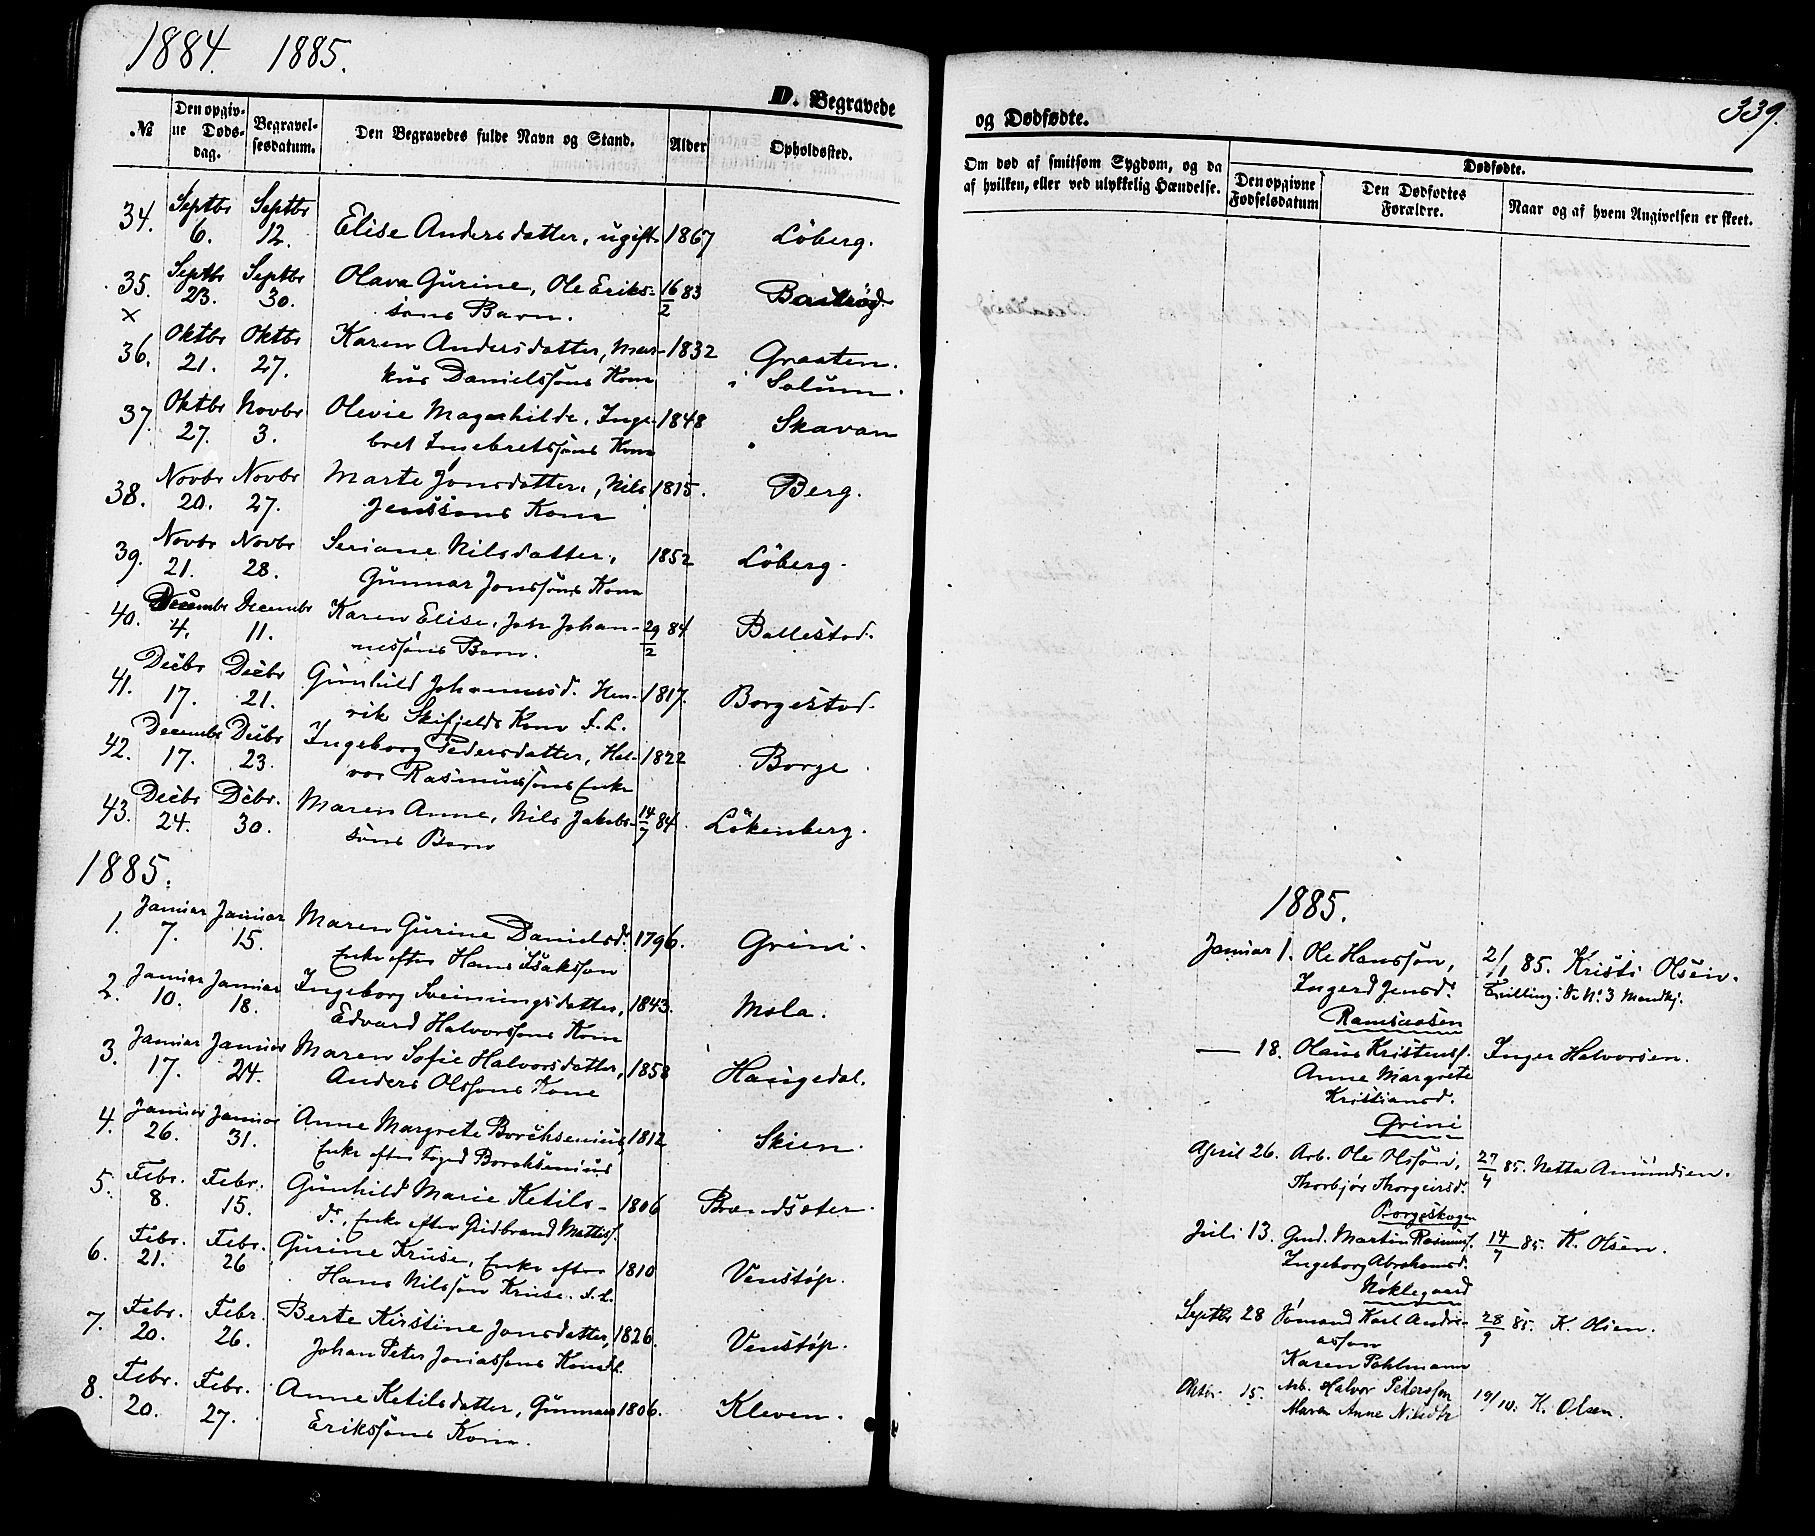 1884. 1885.
D. Begravede
№
Den opgiv-
ne Døds-
dag.
Begravel-
sesdatum.
Den Begravedes fulde Navn og Stand.
Alder
Opholdssted.
34. Septbr 6. Septbr 12. Elise Andersdatter, ugift 1867 Löberg.
35. Septbr 23. Septbr 30. Olava Gurine, Ole Eriks- 16/2 83
søns Barn.
x
36. Oktbr 21. Oktbr 27. Karen Andersdatter, Mar- 1832 Graaten.
kus Danielssøns Kone i Solum.
37. Oktbr 27. Novbr 3. Olevie Magnhilde, Inge- 1848 Skavan
bret Ingebretssøns Kone
38. Novbr 20. Novbr 27. Marte Jonsdatter, Nils 1815. Berg.
Jenssøns Kone
39. Novbr 21. Novbr 28. Seriane Nilsdatter, 1852 Löberg.
Gunnar Jonssøns Kone
40. Decembr 4. Decembr 11. Karen Elise, Joh Johan- 29/2 84 Ballestad.
nessøns Barn.
41. Decbr 17. Decbr 21. Gunhild Johannesd. Hen- 1817. Borgestad.
rik Skifjelds Kone f.L.
42. Decembr 17. Decbr 23. Ingeborg Pedersdatter, Hal- 1822 Borge.
vor Rasmussøns Enke
43. Decbr 24. Debr. 30. Maren Anne, Nils Jakobs- 14/7 84. Lökenberg.
søns Barn
1885.
1. Januar 7. Januar 15. Maren Gurine Danielsd. 1796. Grini.
Enke efter Hans Isaksson
2. Januar 10. Januar 18. Ingeborg Sveinungsdatter, 1843. Mæla.
Edvard Halvorssøns Kone
3. Januar 17. Januar 24. Maren Sofie Halvorsdatter, 1858 Haugedal.
Anders Olssøns Kone
4. Januar 26. Januar 31. Anne Margrete Borchsenius, 1812 Skien.
Enke efter Foged Borchsenius
5. Febr. 8. Febr. 15. Gunhild Marie Ketils- 1806
dr., Enke efter Gudbrand Mattiss.
6. Febr. 21. Febr. 26 Gurine Kruse, Enke efter 1810 Venstøp.
Hans Nilssøn Kruse. f.L.
7. Febr. 20. Febr. 26. Berte Kirstine Jonsdatter, 1826. Venstøp.
Johan Peter Jonassøns Kone
8. Febr. 20. Febr. 27. Anne Ketilsdatter, Gunnar 1806. Kleven.
Erikssøns Kone.
339.
og Dødfødte.
Om død af smitsom Sygdom, og da
af hvilken, eller ved ulykkelig Hændelse.
Dødfødte.
Den opgivne
Fødselsdatum
Den Dødfødtes
Forældre.
Naar og af hvem Angivelsen er skeet.
1885.
Januar 1. Ole Hanssøn, 2/1 85. Kristi Olsen.
Ingerd Jensd. Tvilling: Se No. 3 Mandkj.
Ramsaasen
— 18. Olaus Kristenss. Inger Halvorsen.
Anne Margrete
Kristiansd.
Grini
April 26. Arb. Ole Olssøn, 27/4 85. Netta Amundsen.
Thorbjør Thorgeirsd.
Borgeskogen
Juli 13. Gmd. Martin Rasmuss. 14/7 85. K. Olsen.
Ingeborg Abrahamsd.
Nøklegaard
Septbr 28 Sømand Karl Andre- 28/9 85. K. Olsen.
assøn
Karen Pohlmann
Oktbr. 15. Arb. Halvor Peterssøn 19/10. K. Olsen.
Maren Anne Nilsdtr